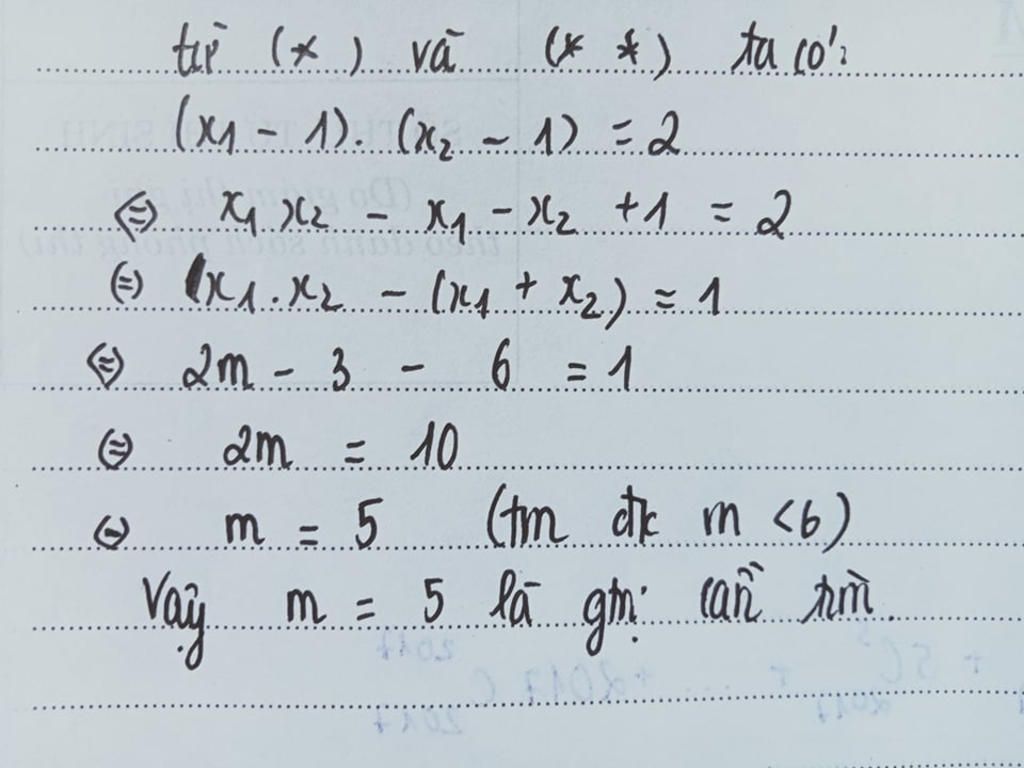 từ (*) và (* *) ta có:
(x₁ - 1). (x₂ - 1) = 2
⇔ x₁ x₂ - x₁ - x₂ + 1 = 2
⇔ x₁ . x₂ - (x₁ + x₂) = 1
⇔ 2m - 3 - 6 = 1
⇔ 2m = 10
⇔ m = 5 (tm đk m < 6)
Vậy m = 5 là gtrị cần tìm.